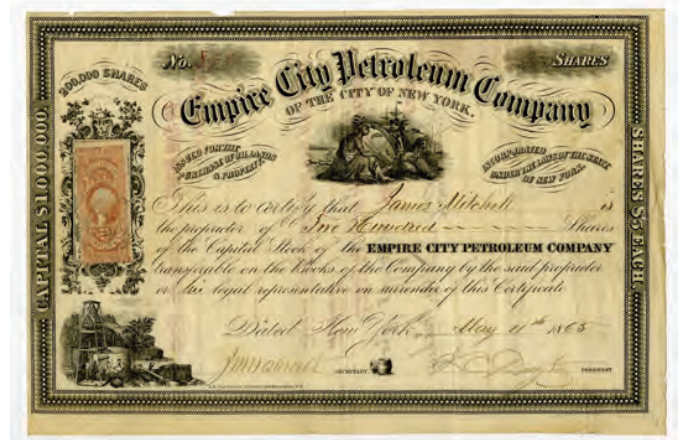 No. SHARES
200,000 SHARES
Empire City Petroleum Company
OF THE CITY OF NEW YORK.
ISSUED FOR THE
PURCHASE OF OIL LANDS
& PROPERTY.
INCORPORATED
UNDER THE LAWS OF THE STATE
OF NEW YORK.
CAPITAL $1,000,000.
SHARES $5 EACH.
This is to certify that James Mitchell is
the proprietor of Hundred Shares
of the Capital Stock of the EMPIRE CITY PETROLEUM COMPANY
transferable on the Books of the Company by the said proprietor
or his legal representative on surrender of this Certificate
Dated New York May 11th 1865
SECRETARY. PRESIDENT